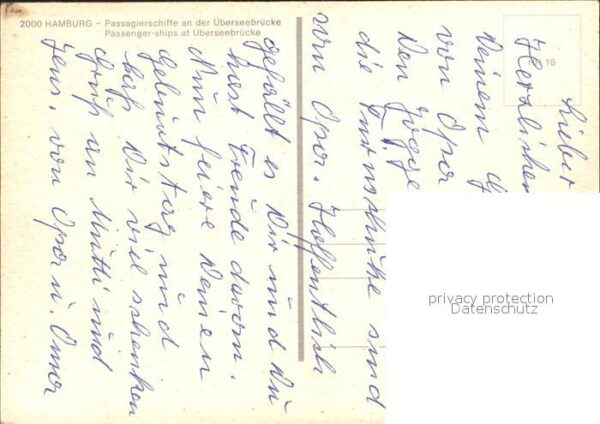 2000 HAMBURG – Passagierschiffe an der Überseebrücke
Passenger-ships at Überseebrücke
18
Lieber
Herzlichen
Deinem G
von Opa
Den Jogge
die Turnschuhe sind
vom Opa. Hoffentlich
gefällt es Dir und Du
hast Freude davon.
Nun feiere Deinen
Geburtstag und
laß Dir viel schenken
Gruß an Mutti und
Jens, von Opa u. Oma
privacy protection
Datenschutz